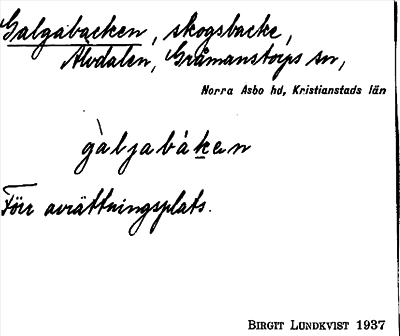 Galgabacken, skogsbacke,
Älvdalen, Gråmanstorps sn,
Norra Asbo hd, Kristianstads län
gàljabáken
Förr avrättningsplats.
BIRGIT LUNDKVIST 1937